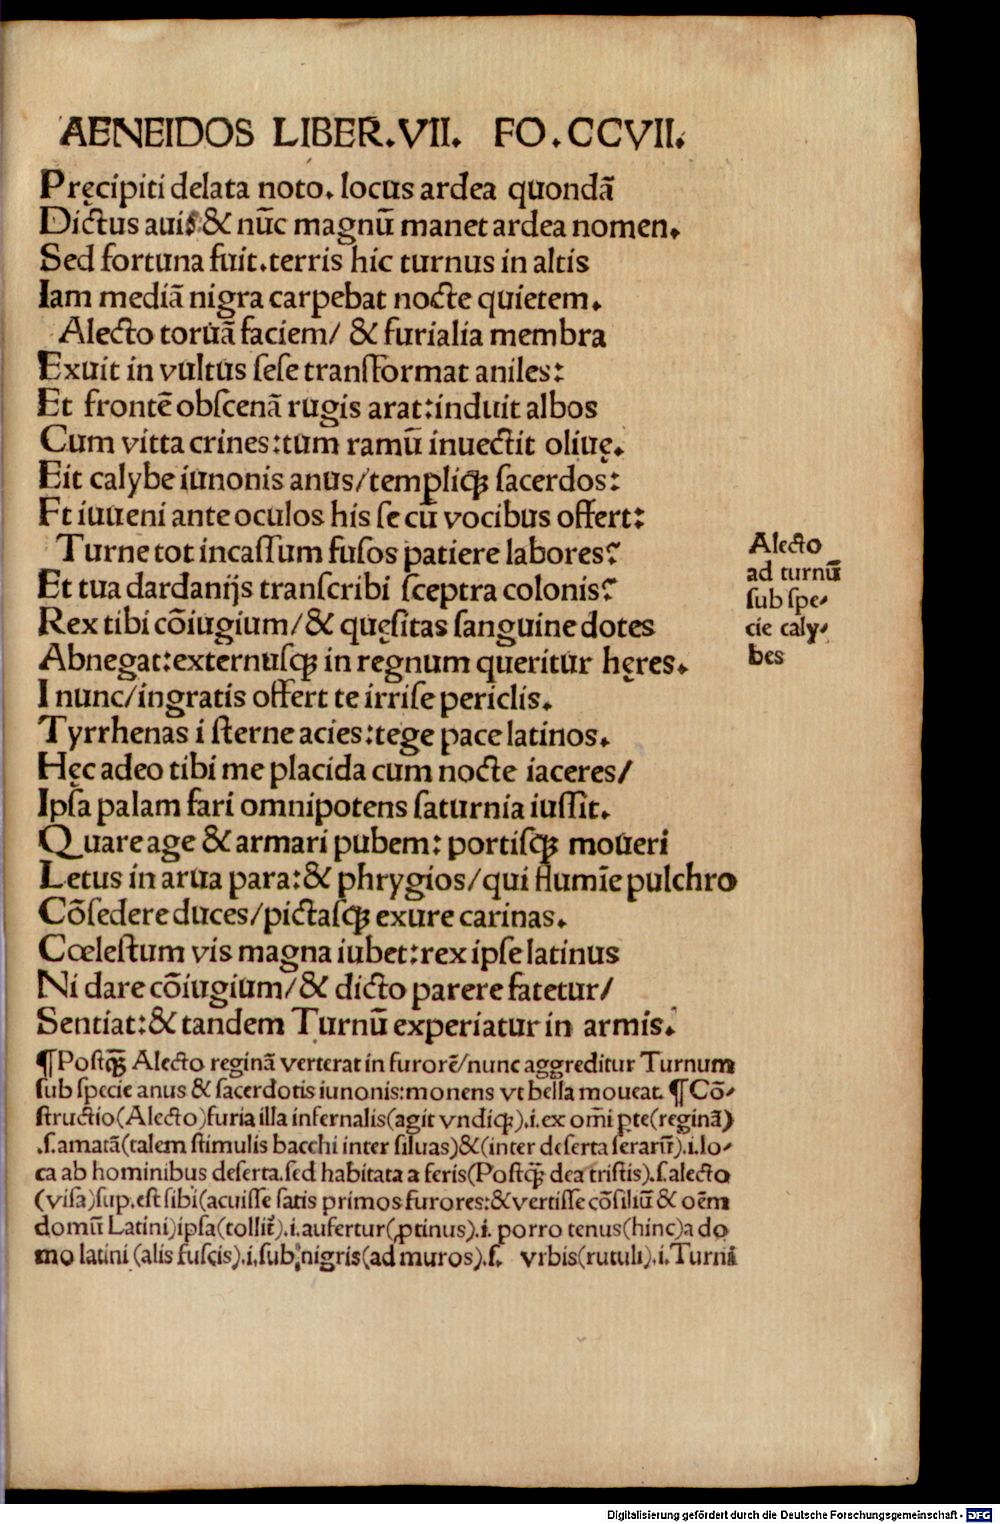 AENEIDOS LIBER.VII. FO.CCVII.
Pręcipiti delata noto. locus ardea quondã
Dictus auis & nũc magnũ manet ardea nomen.
Sed fortuna fuit.terris hic turnus in altis
Iam mediã nigra carpebat nocte quietem.
Alecto toruã faciem/ & furialia membra
Exuit in vultus sese transformat aniles:
Et frontẽ obscenã rugis arat:induit albos
Cum vitta crines:tum ramũ inuectit oliuę.
Eit calybe iunonis anus/templiqꝫ sacerdos:
Et iuueni ante oculos his se cũ vocibus offert:
Turne tot incassum fusos patiere labores?
Et tua dardanijs transcribi sceptra colonis?
Rex tibi cõiugium/& quęsitas sanguine dotes
Abnegat:externusqꝫ in regnum queritur hęres.
I nunc/ingratis offert te irrise periclis.
Tyrrhenas i sterne acies:tege pace latinos.
Hęc adeo tibi me placida cum nocte iaceres/
Ipsa palam fari omnipotens saturnia iussit.
Quare age & armari pubem: portisqꝫ moueri
Letus in arua para:& phrygios/qui flumĩe pulchro
Cõsedere duces/pictasqꝫ exure carinas.
Cœlestum vis magna iubet:rex ipse latinus
Ni dare cõiugium/& dicto parere fatetur/
Sentiat:& tandem Turnũ experiatur in armis.
Alecto
ad turnũ
sub spe-
cie caly-
bes
¶Postqꝫ̃ Alecto reginã verterat in furorẽ/nunc aggreditur Turnum
sub specie anus & sacerdotis iunonis:monens vt bella moueat. ¶Cõ-
structio(Alecto)furia illa infernalis(agit vndiqꝫ).i.ex om̃i ꝑte(reginã)
.s.amatã(talem stimulis bacchi inter siluas)&(inter deserta ferarũ).i.lo-
ca ab hominibus deserta.sed habitata a feris(Postqꝫ̃ dea tristis).s.alecto
(visa)sup.est sibi(acuisse satis primos furores:& vertisse cõsiliũ & oẽm
domũ Latini)ipsa(tollit̃).i.aufertur(ꝓtinus).i. porro tenus(hinc)a do
mo latini (alis fuscis).i.sub nigris(ad muros).s. vrbis(rutuli).i.Turni
Digitalisierung gefördert durch die Deutsche Forschungsgemeinschaft - DFG